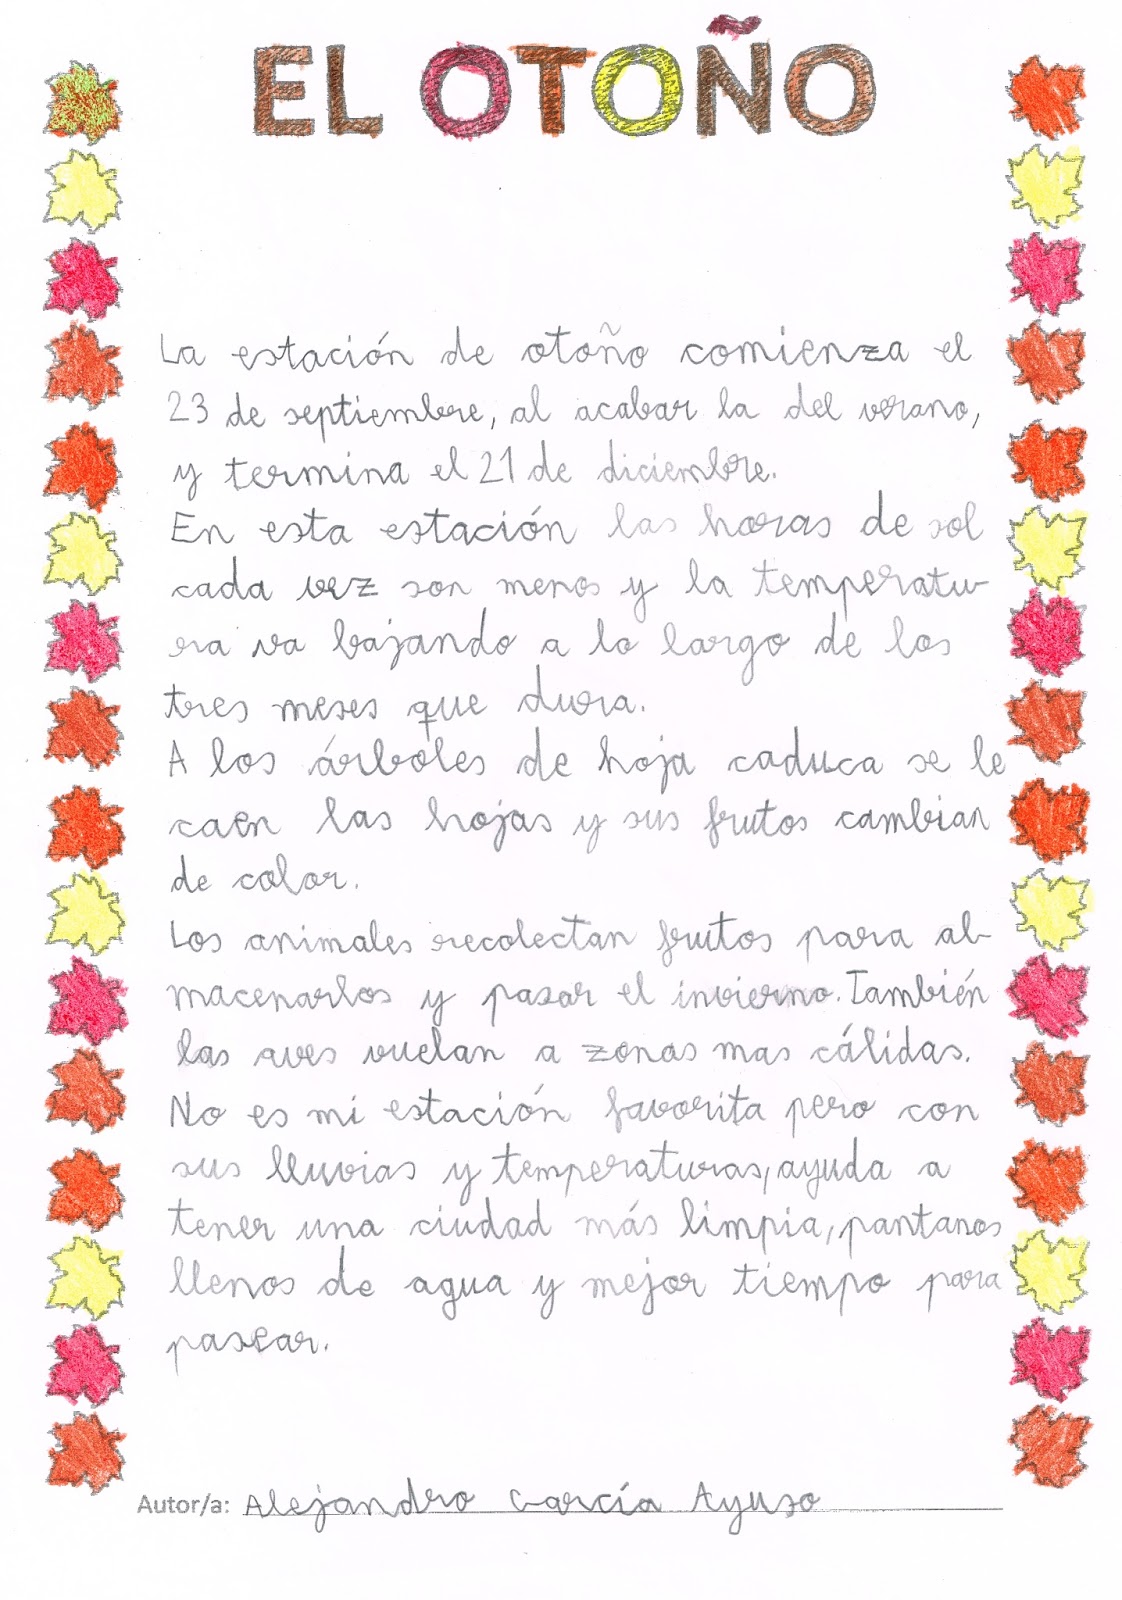 EL OTOÑO
La estación de otoño comienza el
23 de septiembre, al acabar la del verano,
y termina el 21 de diciembre.
En esta estación las horas de sol
cada vez son menos y la temperatu-
ra va bajando a lo largo de los
tres meses que dura.
A los árboles de hoja caduca se le
caen las hojas y sus frutos cambian
de color.
Los animales recolectan frutos para al-
macenarlos y pasar el invierno. También
las aves vuelan a zonas mas cálidas.
No es mi estación favorita pero con
sus lluvias y temperaturas, ayuda a
tener una ciudad más limpia, pantanos
llenos de agua y mejor tiempo para
pasear.
Autor/a: Alejandro García Ayuso